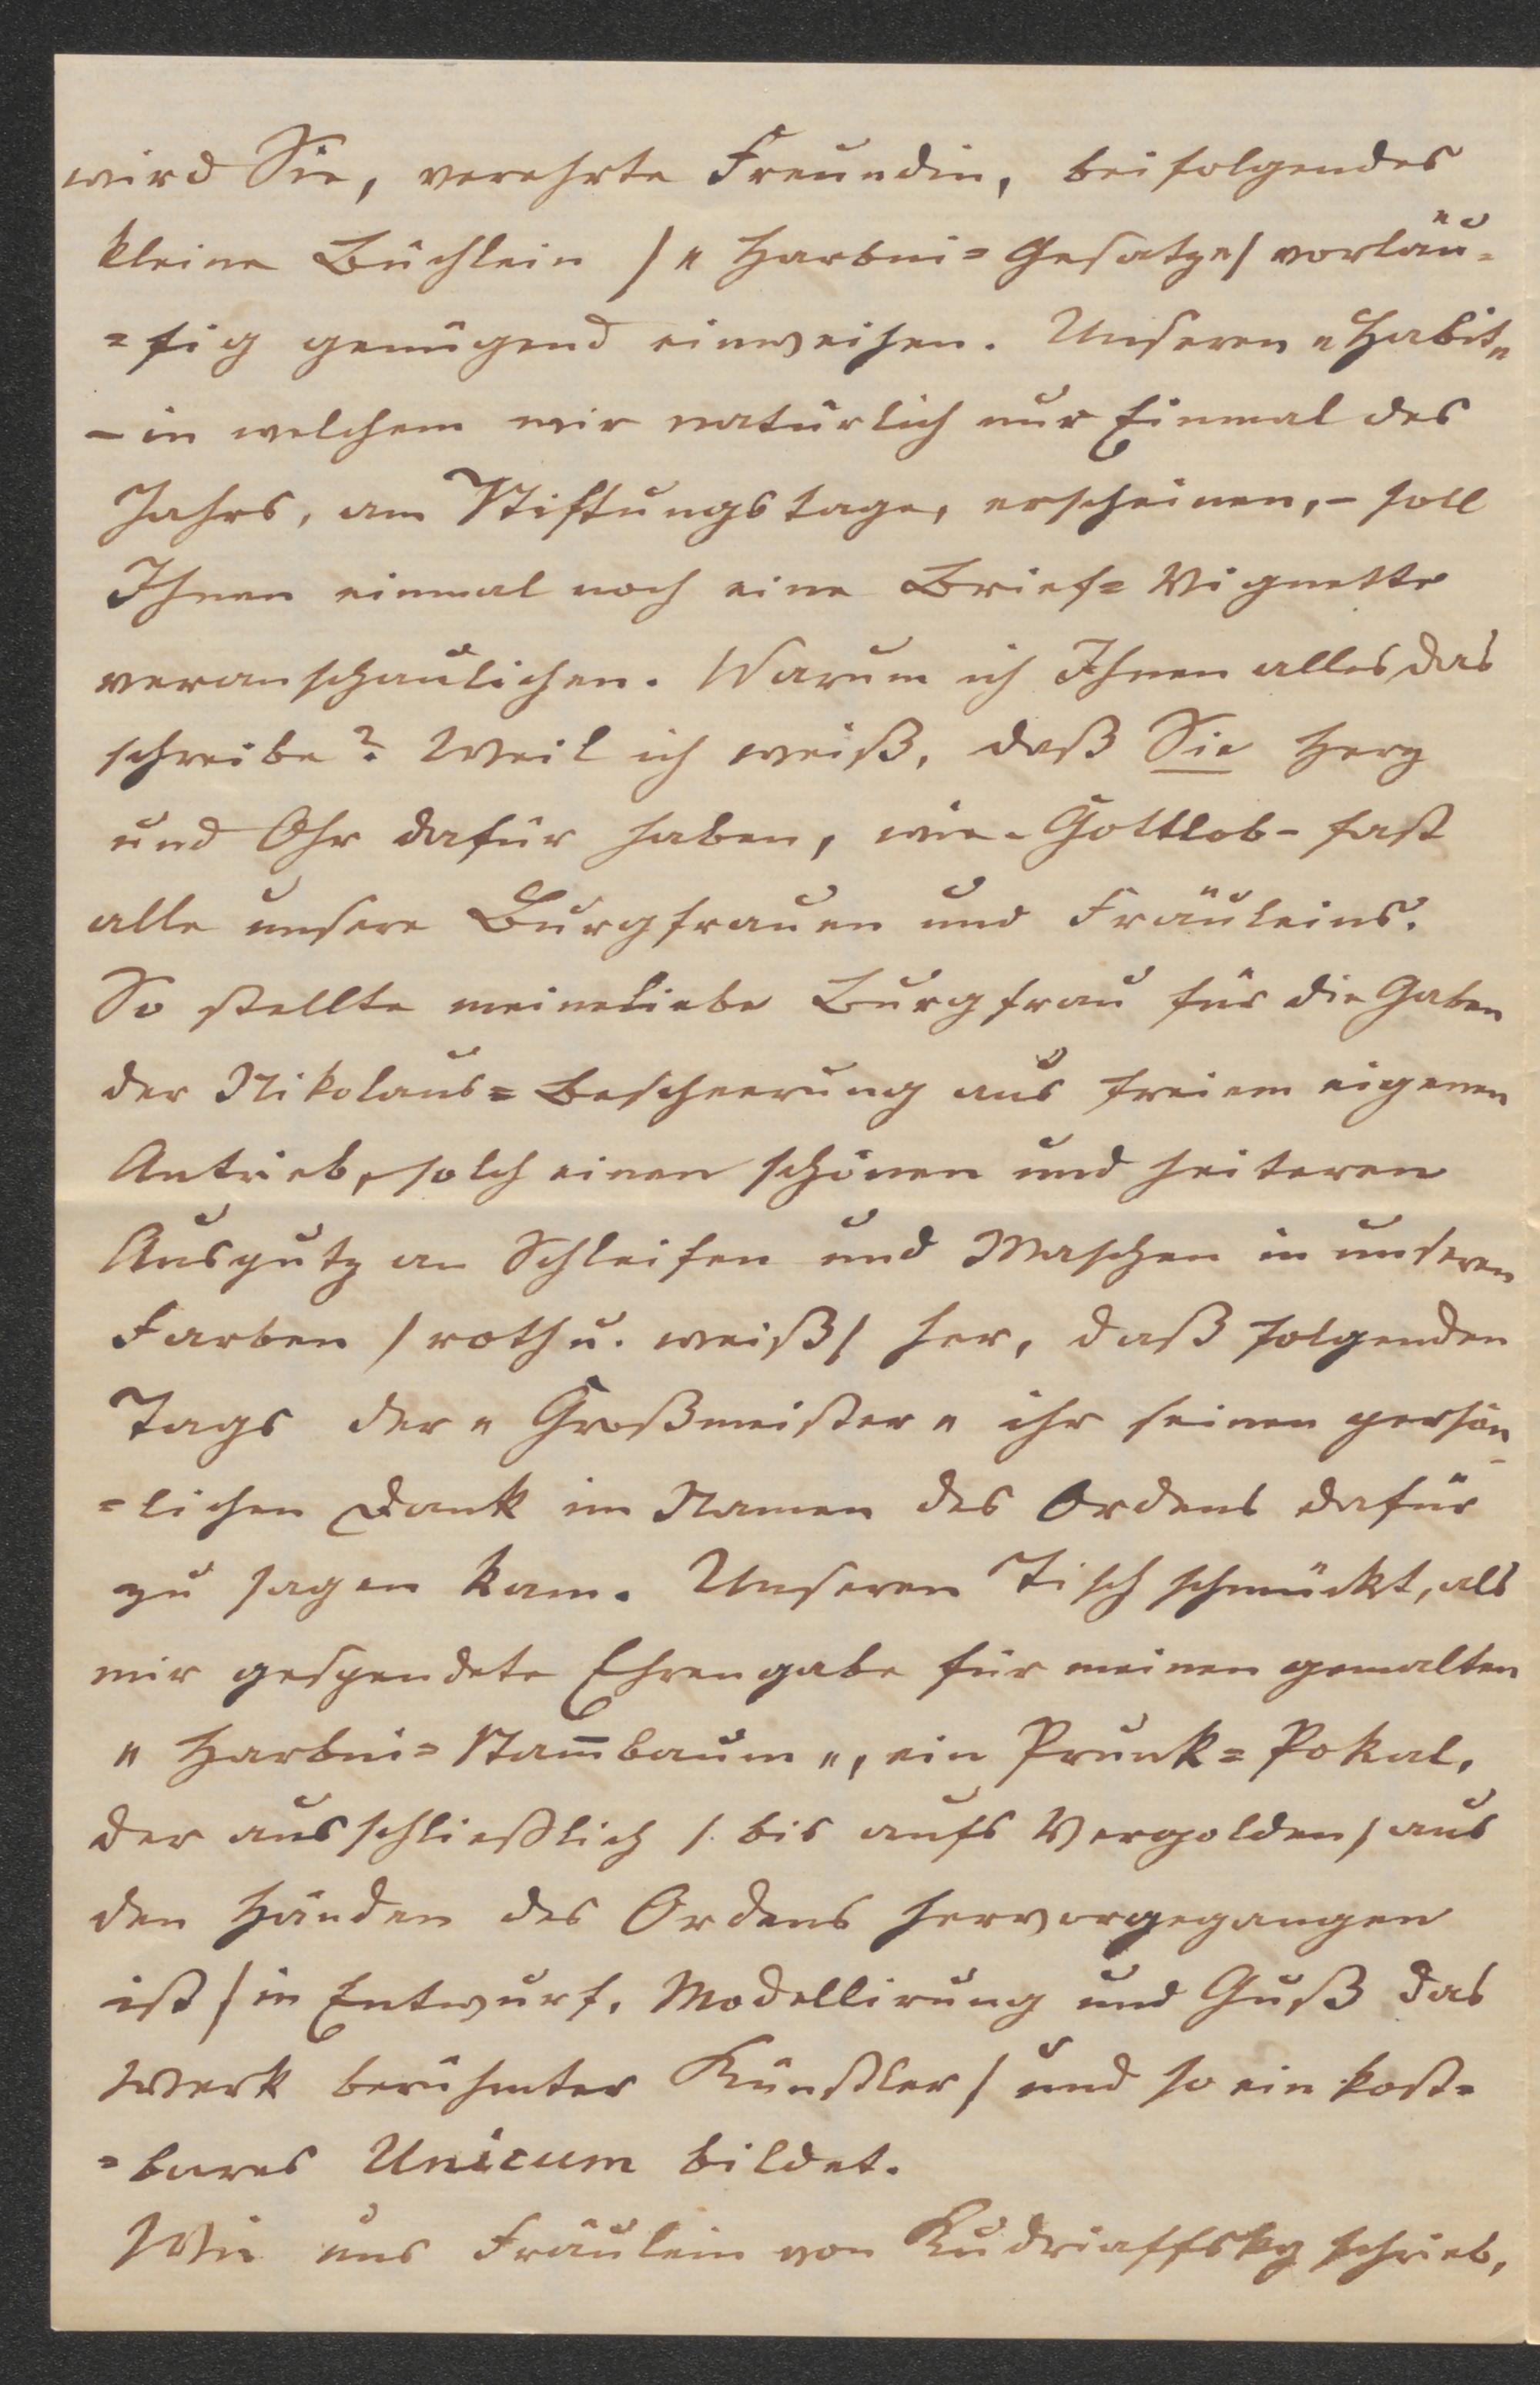 wird Sie, verehrte Freundin, beifolgendes
kleine Büchlein /„Harbni=Gesatze/ vorläu=
=fig genügend einweihen. Unseren „Habit„
– in welchem wir natürlich nur Einmal des
Jahrs, am Stiftungstage, erscheinen, – soll
Ihnen einmal noch eine Brief=Vignette
veranschaulichen. Warum ich Ihnen alles das
schreibe? Weil ich weiß, daß Sie Herz
und Ohr dafür haben, wie – Gottlob – fast
alle unsere Burgfrauen und Fräuleins.
So stellte meine liebe Burgfrau für die Gaben
der Nikolaus=Bescheerung aus freiem eigenen
Antrieb, solch einen schönen und heiteren
Ausputz an Schleifen und Maschen in unseren
Farben /roth u. weiß/ her, daß folgenden
Tags der „Großmeister„ ihr seinen persön=
=lichen Dank im Namen des Ordens dafür
zu sagen kam. Unseren Tisch schmückt, als
mir gespendete Ehrengabe für meinen gemalten
„Harbni=Stam̄baum„, ein Prunk=Pokal,
der ausschließlich /. bis aufs Vergolden/ aus
den Händen des Ordens hervorgegangen
ist /in Entwurf, Modellirung und Guß das
Werk berühmter Künstler/ und so ein kost=
=bares Unicum bildet.
Wie uns Fräulein von Kudriaffsky schrieb,